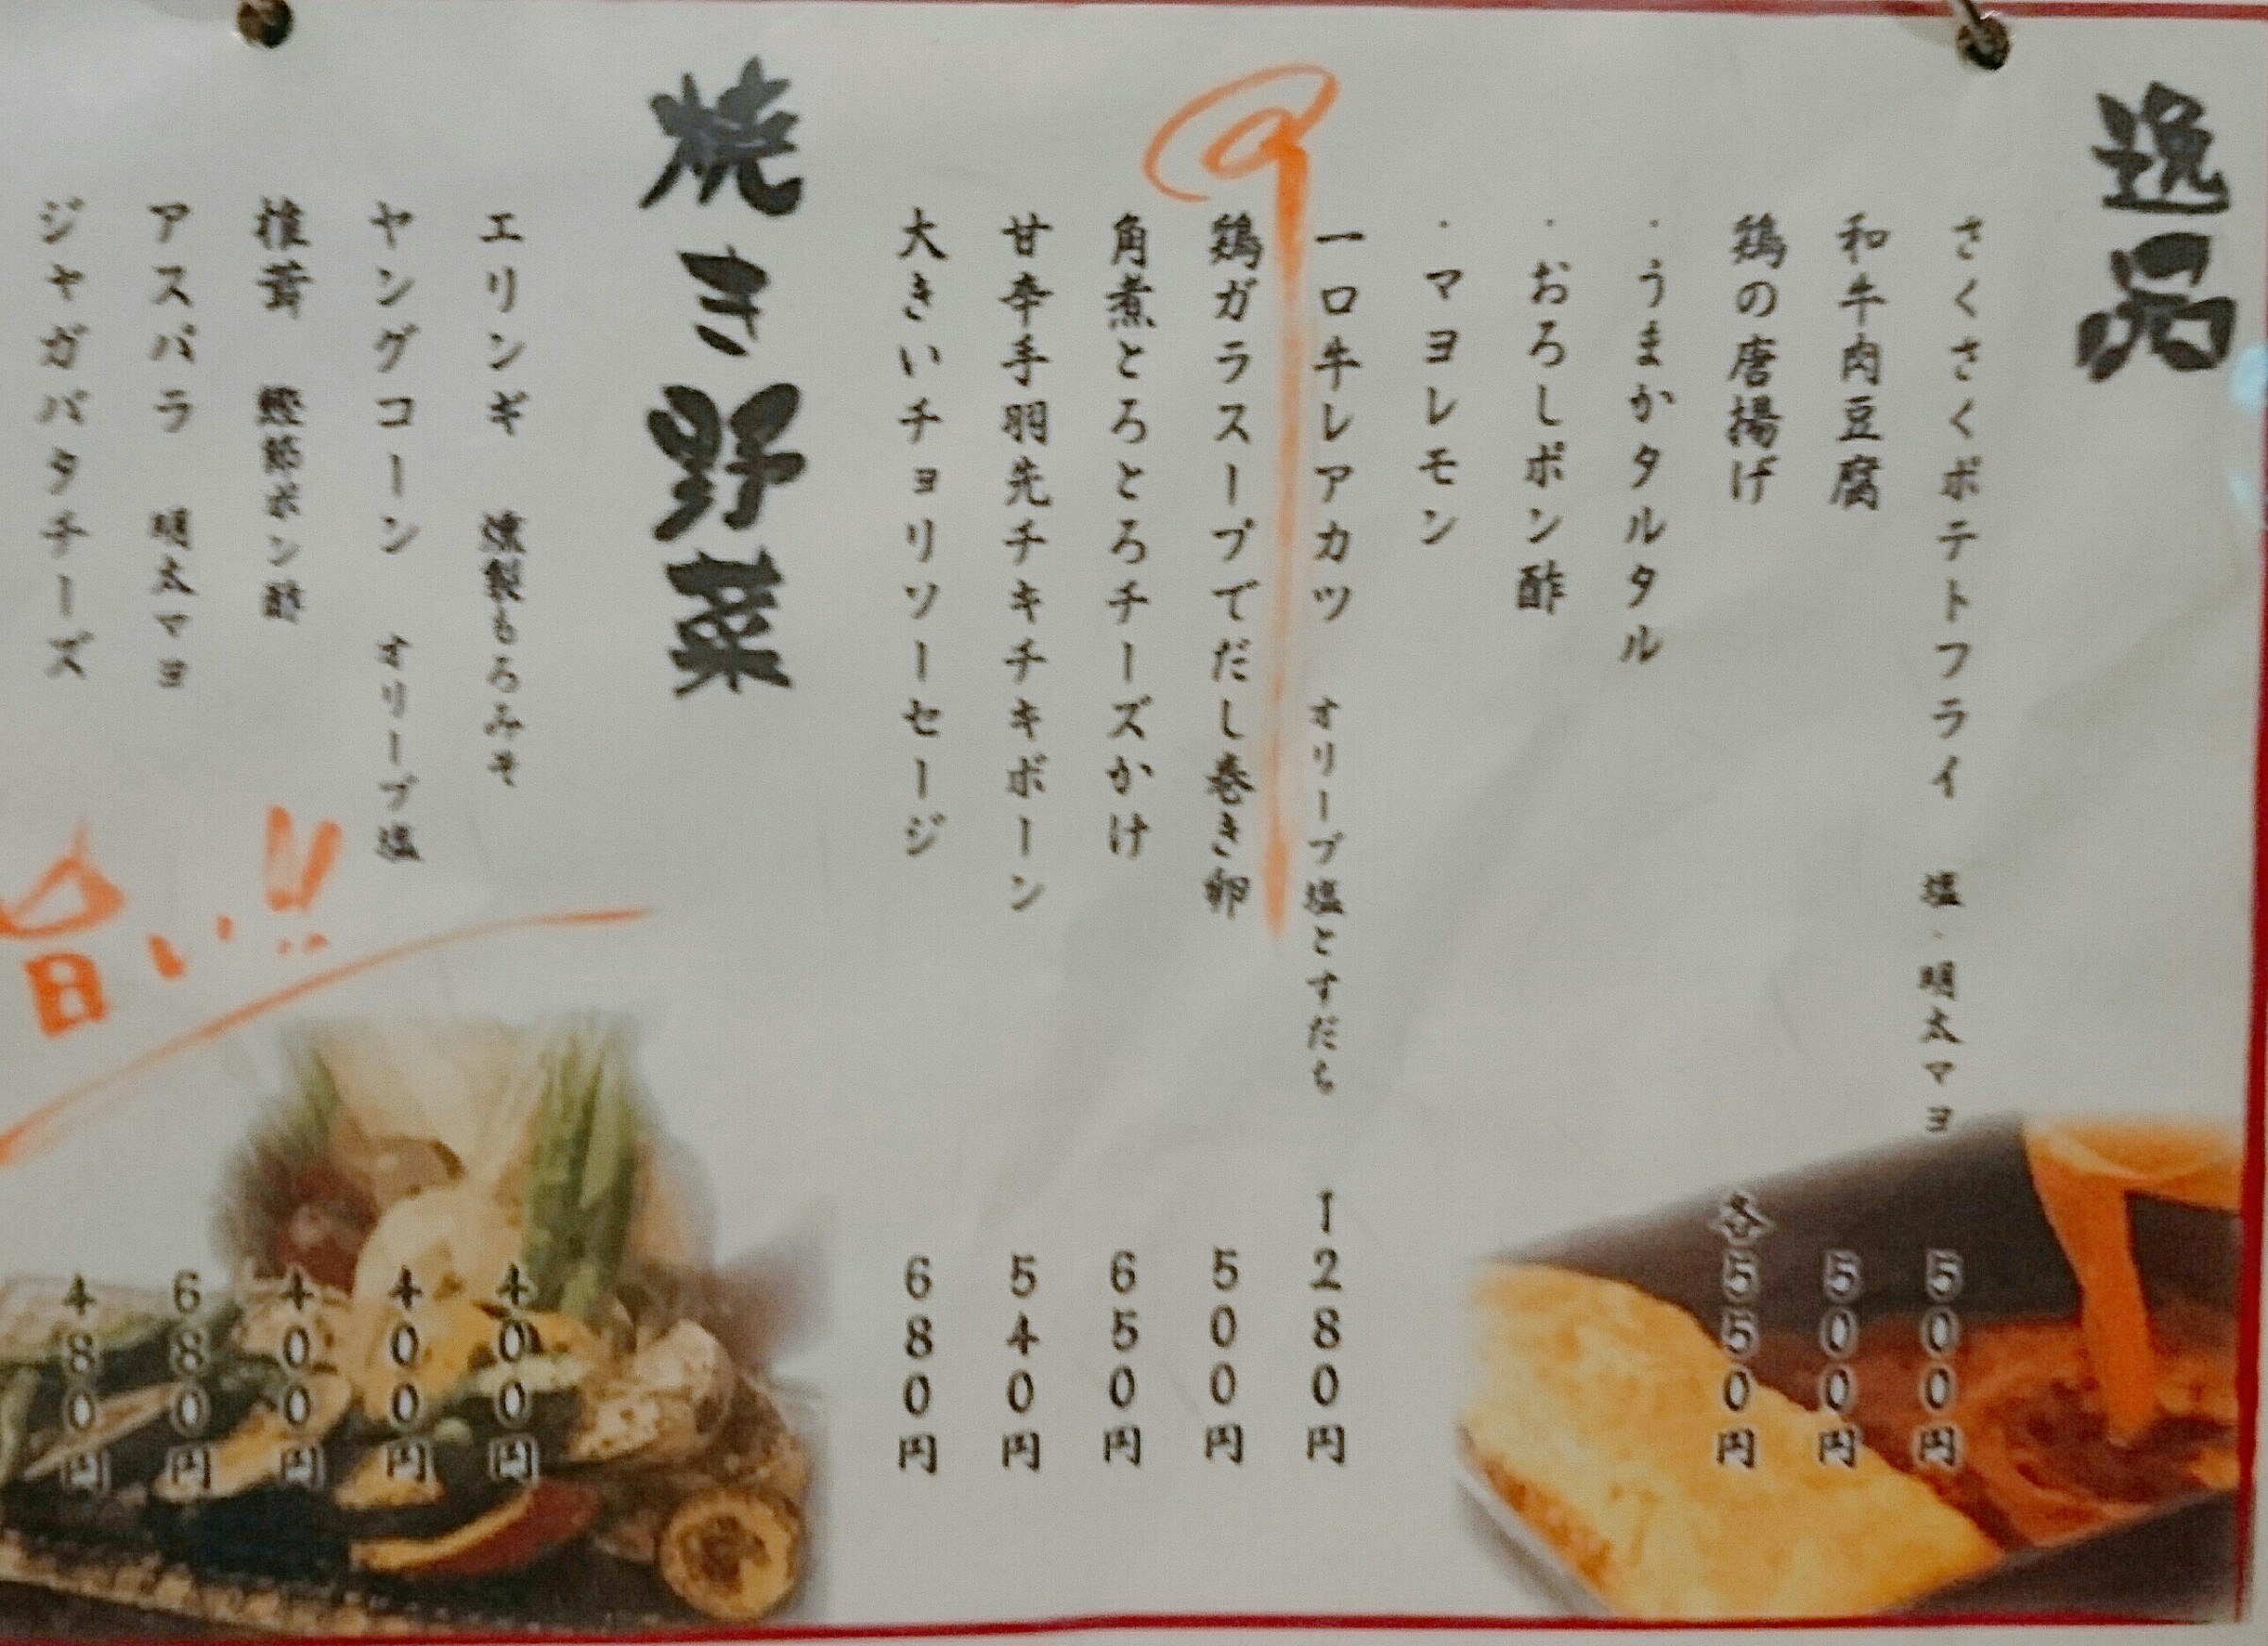 逸品
さくさくポテトフライ 塩・明太マヨ 500円
和牛肉豆腐 500円
鶏の唐揚げ 各550円
・うまかタルタル
・おろしポン酢
・マヨレモン
一口牛レアカツ オリーブ塩とすだち 1280円
鶏ガラスープでだし巻き卵 500円
角煮とろとろチーズかけ 650円
甘辛手羽先チキチキボーン 540円
大きいチョリソーセージ 680円
焼き野菜
エリンギ 燻製もろみそ 400円
ヤングコーン オリーブ塩 400円
椎茸 鰹節ポン酢 400円
アスパラ 明太マヨ 680円
ジャガバタチーズ 480円
旨い!!